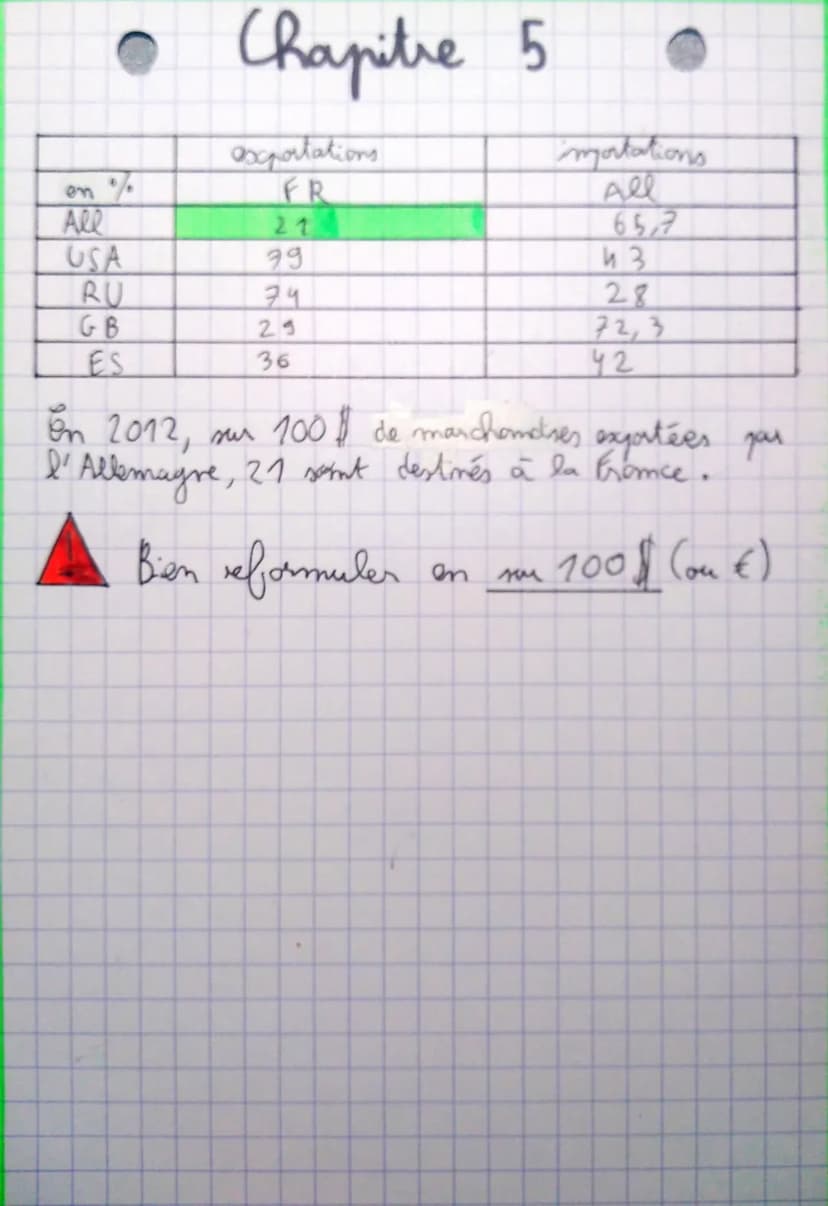 Chapitre 5
exportations importations
en % FR All
All 21 65,7
USA 79 43
RU 74 28
GB 29 72,3
ES 36 42
En 2012, sur 100 $ de marchandises exportées par
l'Allemagne, 21 sont destinés à la France.
! Bien reformuler en sur 100 $ (ou €)